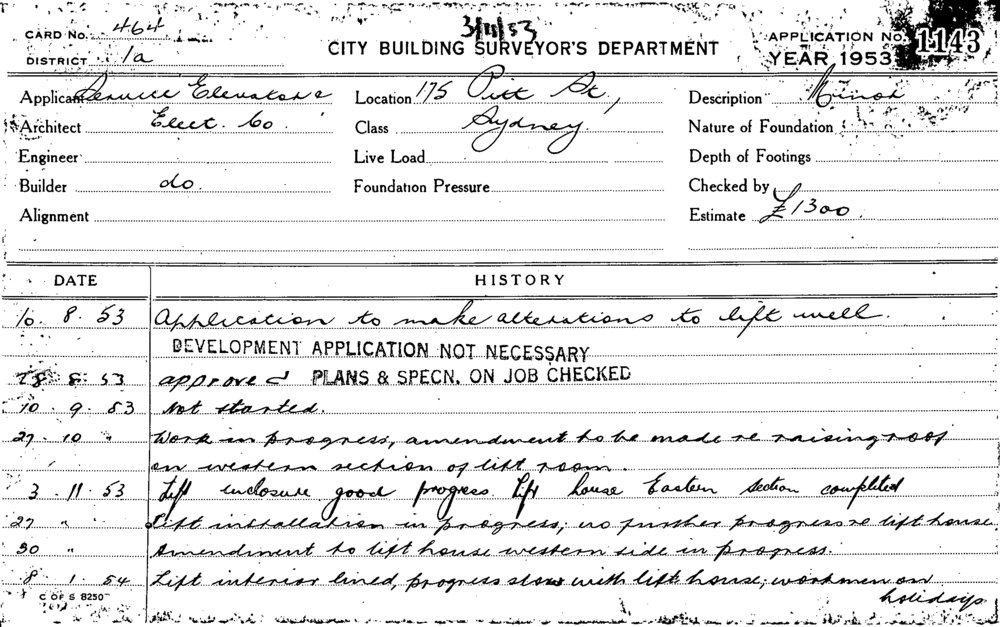 3/11/53
CARD No. 464
CITY BUILDING SURVEYOR'S DEPARTMENT
APPLICATION No. 1143
DISTRICT 1a
YEAR 1953
Applicant Service Elevators
Location 175 Pitt St,
Description Minor
Architect Elect. Co.
Class Sydney.
Nature of Foundation
Engineer
Live Load
Depth of Footings
Builder do.
Foundation Pressure
Checked by
Alignment
Estimate £1300.
DATE HISTORY
10. 8. 53 Application to make alterations to lift well.
DEVELOPMENT APPLICATION NOT NECESSARY
8. 53 approved PLANS & SPECN. ON JOB CHECKED
10. 9. 53 Not started.
27. 10 " Work in progress, amendment to be made re raising roof
on western section of lift room.
3. 11. 53 Lift enclosure good progress. Lift house Eastern section completed
27 " Lift installation in progress, no further progress re lift house.
30 " Amendment to lift house western side in progress.
8. 1. 54 Lift interior lined, progress slow with lift house; workmen on
holidays
C OF S 8250